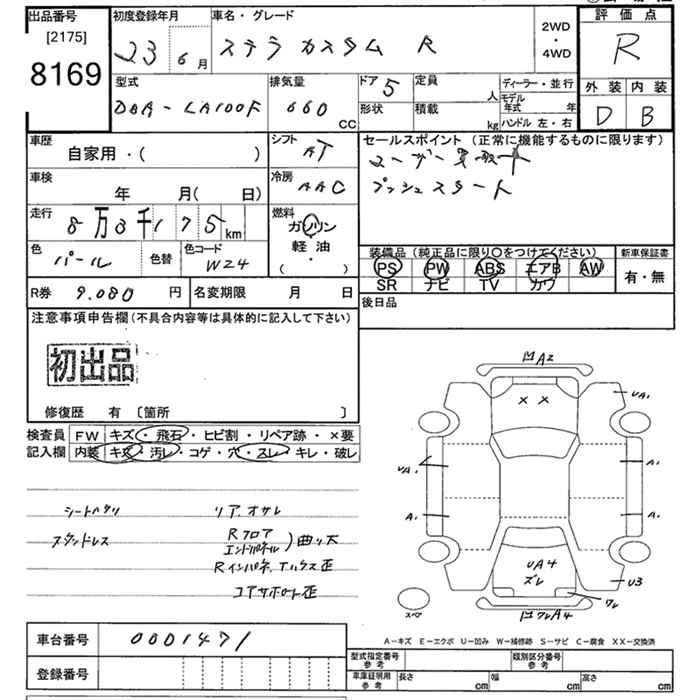 出品番号
[2175]
8169
初度登録年月
23 6月
車名・グレード
ステラ カスタム R
2WD
・
4WD
評価点
R
外装 内装
D B
型式
DBA-LA100F
排気量
660
CC
ドア 5
形状
定員
人
積載
kg
ディーラー・並行
モデル
年式 年
ハンドル 左・右
車歴
自家用・( )
シフト
AT
セールスポイント (正常に機能するものに限ります)
ユーザー買取車
プッシュスタート
車検
年 月( 日)
冷房
AAC
走行
8万3千175km
燃料
ガソリン
軽 油
・
( )
色
パール
色替
色コード
W24
装備品(純正品に限り○をつけてください)
PS PW ABS エアB AW
SR ナビ TV カワ
新車保証書
有・無
R券 9.080 円
名変期限 月 日
後日品
注意事項申告欄(不具合内容等は具体的に記入して下さい)
初出品
修復歴 有 〔箇所 〕
検査員 FW キズ・飛石・ヒビ割・リペア跡・×要
記入欄 内装 キズ・汚レ・コゲ・穴・スレ・キレ・破レ
シートヘタリ
スタッドレス
リア.オサレ
Rフロア
エンドパネル)曲り大
Rインパネ.
コアサポート歪
凹A2
× ×
UA1
UA1
A1
A1
A1
UA4
ズレ
U3
ワレ
凹ワレA4
スペア
A-キズ E-エクボ U-凹み W-補修跡 S-サビ C-腐食 XX-交換済
車台番号
0001471
登録番号
型式指定番号
参考
類別区分番号
参考
車庫証明用
参考
長さ cm
幅 cm
高さ cm